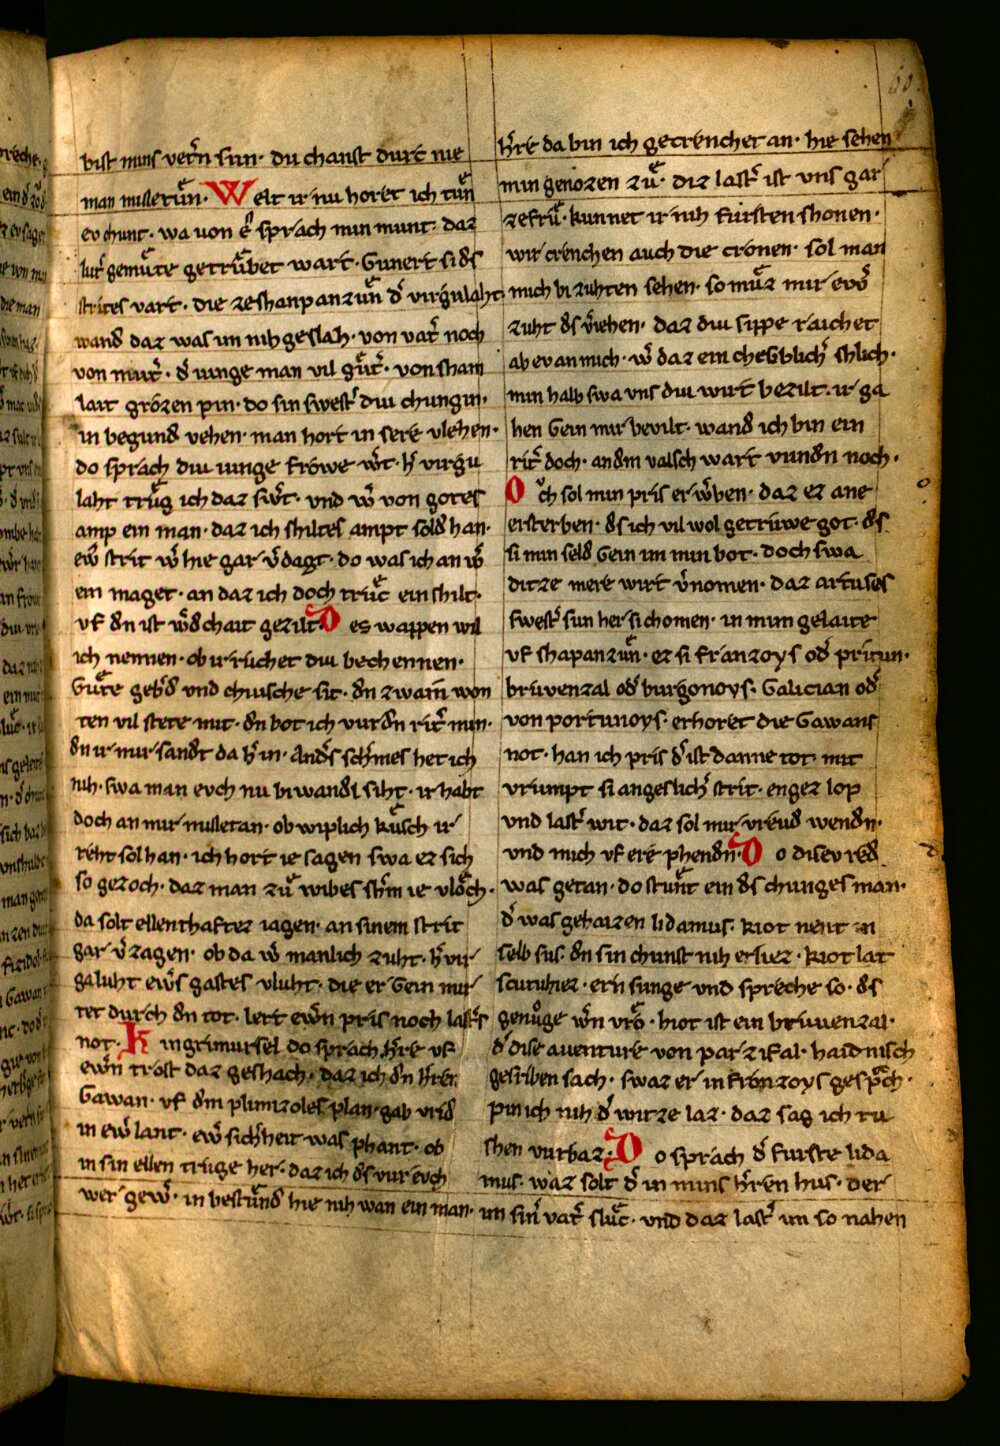 bist mins vetn̄ sun· du chanst durt nie
man missetůn· Welt ir nu horet ich tůn
ev chunt· wa von ê sprach min munt· daz
lut̄ gemůte getrůbet wart· Gunert si ds
strites vart· die zeshanpanzůn d̄ virgulaht·
wand daz was im nih geslah· von vat̄ noch
von mut̄· d̄ iunge man vil gůt̄· von sham
lait grozen pin· do sin swest̄ diu chungin·
in begund vehen· man hort in sere vlehen·
do sprach diu iunge frowe w̄t· h̄ virgu
laht trůg ich daz sw̄t· vnd w̄ von gotes
amp ein man· daz ich shiltes ampt sold han·
ew̄ strit w̄ hie gar v̄dagt· do was ich an w̄
ein maget· an daz ich doch trůc ein shilt·
vf dn ist w̄dchait gezilt· Des wappen wil
ich nennen· ob ir růchet diu bechennen·
Gůte geb̄d vnd chiusche sit· dn zwain̄ won
ten vil stete mit· dn bot ich vur dn rit̄ min·
dn ir mir sandt da h̄ in· and̄s sch̄mes het ich
nih· swa man evch nu bi wandl siht· ir habt
doch an mir missetan· ob wiplich kůsch ir
reht sol han· ich hort ie sagen swa ez sich
so gezoch· daz man zů wibes sh̄m ie vloch·
da solt ellenthaftez iagen· an sinem strit
gar v̄zagen· ob da w̄ manlich zuht· h̄ vir
galuht ew̄s gastes vluht· die er Gein mir
tet durch dn tot· lert ew̄n pris noch last̄s
not· Kingrimursel do sprach h̄re vf
ew̄n trost daz geshach· daz ich dn h̄ren
Gawan· vf dm plimizoles plan· gab vrid
in ew̄ lant· ew̄ sich̄heit was phant· ob
in sin ellen trůge her· daz ich ds vur evch
wer gew̄· in bestůnd hie nih wan ein man·
h̄re da bin ich gecrenchet an· hie sehen
min genozen zů· diz last̄ ist vns gar
zefrů· kunnet ir nih fursten shonen·
wir crenchen auch die cronen· sol man
mich bi zuhten sehen· so můz mir ev̄
zuht ds v̄iehen· daz diu sippe raichet
ab ev an mich· w̄ daz ein chebblich̄ shlich·
min halb swa vns diu wirt bezilt· ir ga
hen Gein mir bevilt· wand ich bin ein
rit̄ doch· an dm valsch wart vundn noch·
Och sol min pris er w̄ben· daz ez ane
ersterben· ds ich vil wol getruwe got· ds
si min seld Gein im min bot· doch swa
ditze mere wirt v̄nomen· daz artuses
swest̄ sun her si chomen· in mim gelaite
vf shapanzůn· ez si franzoys od̄ pritun·
bruvenzal od̄ burgonoys· Galician od̄
von portunoys· erhoret die Gawans
not· han ich pris d̄ ist danne tot· mir
vrumpt si angeslich̄ strit· engez lop
vnd last̄ wit· daz sol mir vreud wendn·
vnd mich vf ere phendn· Do disev red
was getan· do stunt ein ds chunges man·
d̄ was gehaizen lidamus· kiot nent in
selb sus· dn sin chunst nih erliez· kiot lat
scuruhiez· ern sunge vnd spreche so· ds
genůge w̄n vro· kiot ist ein bruvenzal·
d̄ dise auenture von parzifal· haidnisch
gesriben sach· swaz er in fronzoys gesp̄ch·
pin ich nih d̄ witze laz· daz sag ich tu
shen vurbaz· Do sprach d̄ furste lida
mus· waz solt d̄ in mins h̄ren hus· der
im sin̄ vat̄ slůc· vnd daz last̄ im so nahen